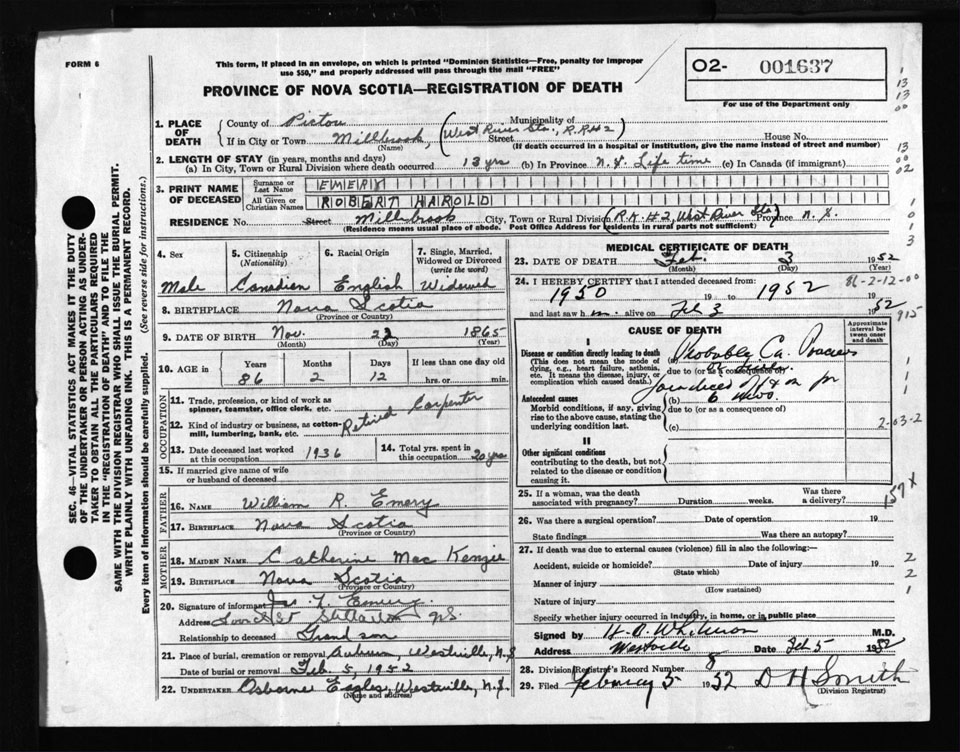 FORM 6
This form, if placed in an envelope, on which is printed "Dominion Statistics—Free, penalty for improper
use $50," and properly addressed will pass through the mail "FREE"
PROVINCE OF NOVA SCOTIA—REGISTRATION OF DEATH
02- 001637
For use of the Department only
1. PLACE OF DEATH
County of Pictou Municipality of
If in City or Town Millbrook, (West River Sta., R.R#2) Street House No.
(Name) (If death occurred in a hospital or institution, give the name instead of street and number)
2. LENGTH OF STAY (in years, months and days)
(a) In City, Town or Rural Division where death occurred 13 yrs (b) In Province N.S. Life time (c) In Canada (if immigrant)
3. PRINT NAME OF DECEASED
Surname or Last Name EMERY
All Given or Christian Names ROBERT HAROLD
RESIDENCE No. Street Millbrook City, Town or Rural Division (R.R #2, West River Sta) Province N.S.
(Residence means usual place of abode. Post Office Address for residents in rural parts not sufficient)
4. Sex Male
5. Citizenship (Nationality) Canadian
6. Racial Origin English
7. Single, Married, Widowed or Divorced (write the word) Widowed
8. BIRTHPLACE Nova Scotia
(Province or Country)
9. DATE OF BIRTH Nov. 22 1865
(Month) (Day) (Year)
10. AGE in Years Months Days If less than one day old
86 2 12 hrs. or min.
OCCUPATION
11. Trade, profession, or kind of work as
spinner, teamster, office clerk, etc. Carpenter
12. Kind of industry or business, as cotton-
mill, lumbering, bank, etc. Retired
13. Date deceased last worked at this occupation 1936
14. Total yrs. spent in this occupation 20 yrs
15. If married give name of wife
or husband of deceased
FATHER
16. NAME William R. Emery
17. BIRTHPLACE Nova Scotia
(Province or Country)
MOTHER
18. MAIDEN NAME Catherine Mac Kenzie
19. BIRTHPLACE Nova Scotia
(Province or Country)
20. Signature of informant Emery
Address Stellarton NS
Relationship to deceased Grand son
21. Place of burial, cremation or removal Auburn, Westville, N.S
Date of burial or removal Feb. 5, 1952
22. UNDERTAKER Osborne Eagles, Westville, N.S.
(Name and address)
MEDICAL CERTIFICATE OF DEATH
23. DATE OF DEATH Feb. 3 1952
(Month) (Day) (Year)
24. I HEREBY CERTIFY that I attended deceased from 86-2-12-00
1950 19 to 1952 19
and last saw him alive on Feb 3 1952
915
CAUSE OF DEATH
Approximate interval between onset and death
I
Disease or condition directly leading to death
(This does not mean the mode of
dying, e.g., heart failure, asthenia,
etc. It means the disease, injury, or
complication which caused death.)
(a) Probably Ca.
due to (or as a consequence of)
Jaundiced for
Antecedent causes
Morbid conditions, if any, giving
rise to the above cause, stating the
underlying condition last.
(b) 6 mos.
due to (or as a consequence of)
(c) 2-03-2
II
Other significant conditions
contributing to the death, but not
related to the disease or condition
causing it.
157 X
25. If a woman, was the death
associated with pregnancy? Duration weeks. Was there a delivery?
26. Was there a surgical operation? Date of operation 19
State findings Was there an autopsy?
27. If death was due to external causes (violence) fill in also the following:—
Accident, suicide or homicide? Date of injury 19
(State which)
Manner of injury
(How sustained)
Nature of injury
Specify whether injury occurred in industry, in home, or in public place
Signed by M.D.
Address Westville Date Feb 5 1952
28. Division Registrar's Record Number 8
29. Filed February 5 1952 D H Smith
(Division Registrar)
SEC. 46—VITAL STATISTICS ACT MAKES IT THE DUTY
OF THE UNDERTAKER OR PERSON ACTING AS UNDER-
TAKER TO OBTAIN ALL THE PARTICULARS REQUIRED
IN THE "REGISTRATION OF DEATH" AND TO FILE THE
SAME WITH THE DIVISION REGISTRAR WHO SHALL ISSUE THE BURIAL PERMIT.
WRITE PLAINLY WITH UNFADING INK. THIS IS A PERMANENT RECORD.
Every item of information should be carefully supplied. (See reverse side for instructions.)